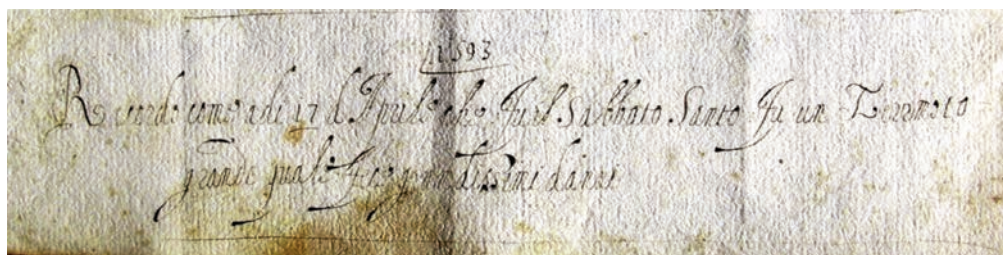 1593
Ricordo come adi 17 d Aprile che fu il Sabbato Santo fu un Terrimoto
grande quale fece grandissimi danni